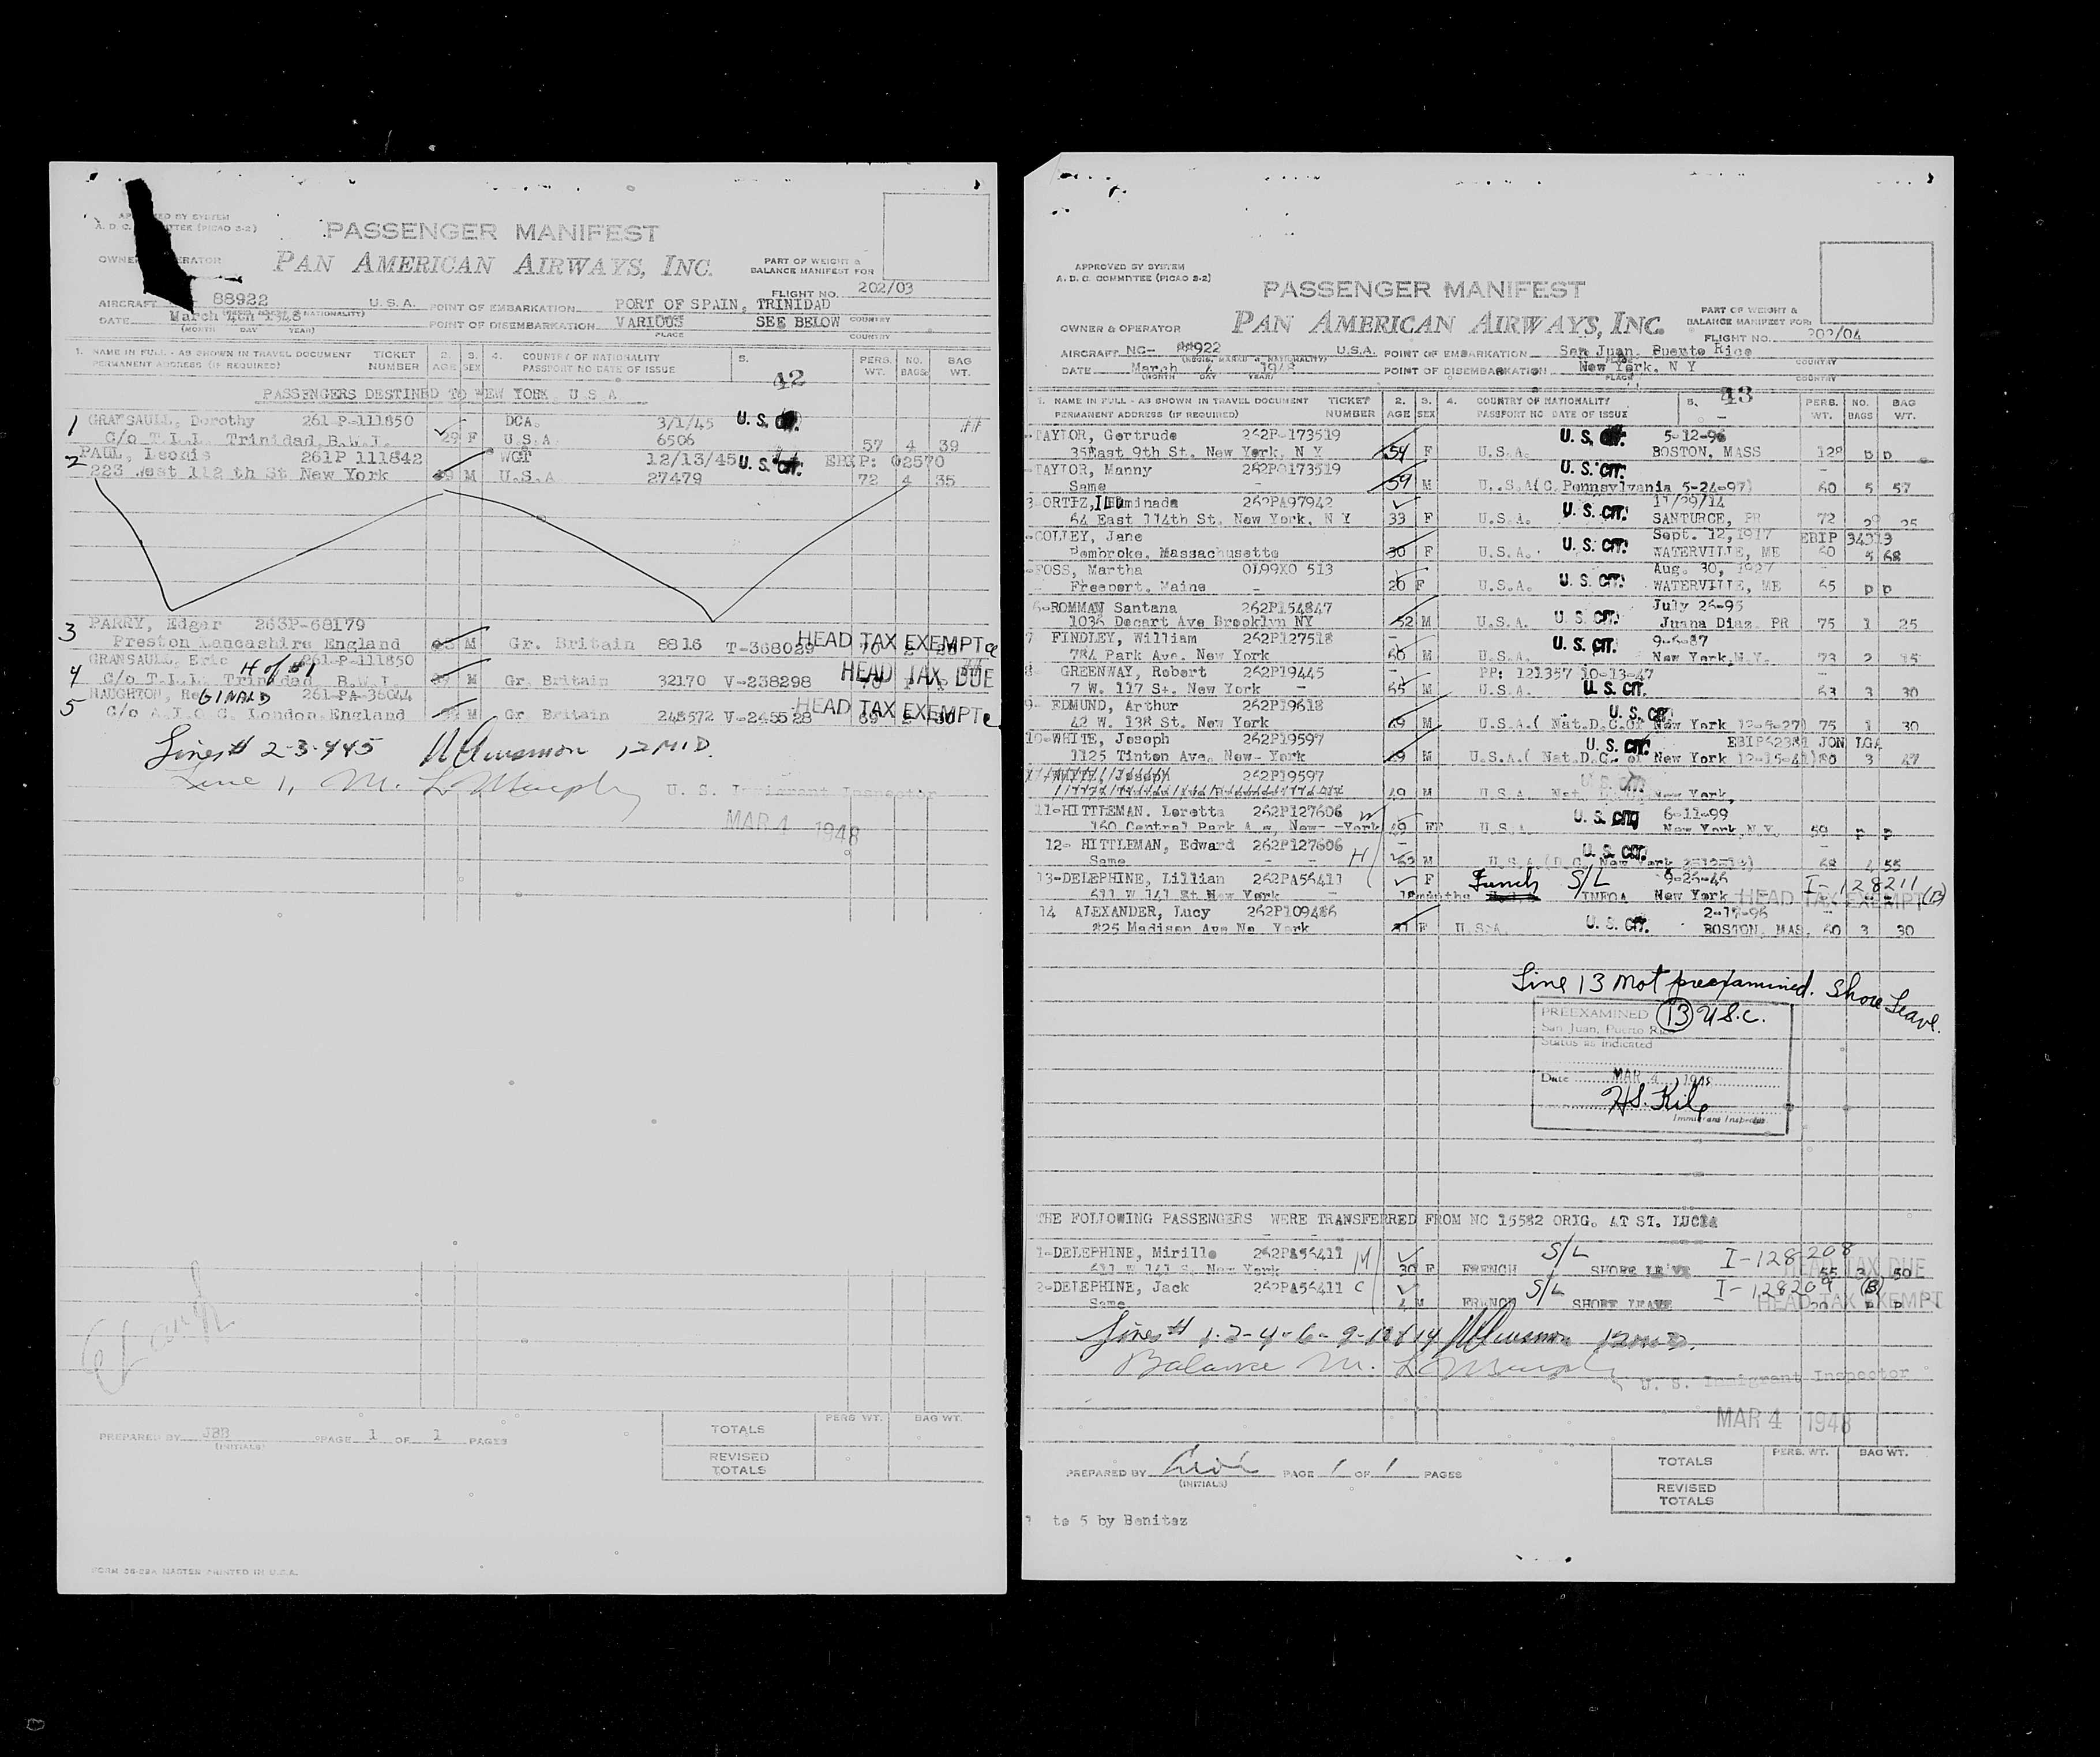 APPROVED BY SYSTEM
A. D. C. COMMITTEE (PICAO S-2)
PASSENGER MANIFEST
OWNER & OPERATOR
PAN AMERICAN AIRWAYS, INC.
PART OF WEIGHT &
BALANCE MANIFEST FOR
FLIGHT NO. 202/03
AIRCRAFT 88922 U.S.A. POINT OF EMBARKATION PORT OF SPAIN, TRINIDAD
DATE March 4th 1948 POINT OF DISEMBARKATION VARIOUS SEE BELOW COUNTRY
(MONTH DAY YEAR) PLACE COUNTRY
1. NAME IN FULL - AS SHOWN IN TRAVEL DOCUMENT TICKET 2. 3. 4. COUNTRY OF NATIONALITY 5. PERS. NO. BAG
PERMANENT ADDRESS (IF REQUIRED) NUMBER AGE SEX PASSPORT NO DATE OF ISSUE WT. BAGS WT.
42
PASSENGERS DESTINED TO NEW YORK U S A
1 GRANSAULL, Dorothy 261-P-111850 DCA. 3/1/45 U.S. CIT.
C/o T.L.L. Trinidad B.W.I. 29 F U.S.A 6506 57 4 39
2 PAUL, Leonis 261P 111842 WGT 12/13/45 U.S. CIT. EBIP: 02570
223 West 112 th St New York M U.S.A 27479 72 4 35
3 PARRY, Edgar 263P-68179 HEAD TAX EXEMPT
Preston Lancashire England M Gr. Britain 8816 T-368029 70
4 GRANSAULL, Eric H of #1 261-P-111850 HEAD TAX DUE
C/o T.L.L. Trinidad B.W.I. M Gr. Britain 32170 V-238298
5 NAUGHTON, ReGINALD 261-PA-36044 HEAD TAX EXEMPT
C/o A.I.O.C. London England M Gr Britain 248572 V-245528 69
Lines # 2-3-4&5
Line 1, M. L Murphy U. S. Immigrant Inspector
MAR 4 1948
PREPARED BY JBB PAGE 1 OF 1 PAGES
(INITIALS)
PERS WT. BAG WT.
TOTALS
REVISED
TOTALS
FORM 36-28A MASTER PRINTED IN U.S.A.
APPROVED BY SYSTEM
A. D. C. COMMITTEE (PICAO S-2)
PASSENGER MANIFEST
OWNER & OPERATOR
PAN AMERICAN AIRWAYS, INC.
PART OF WEIGHT &
BALANCE MANIFEST FOR
FLIGHT NO. 202/04
AIRCRAFT NC- 88922 U.S.A. POINT OF EMBARKATION San Juan, Puerto Rico COUNTRY
DATE March 4 1948 POINT OF DISEMBARKATION New York, N Y
(MONTH DAY YEAR) PLACE COUNTRY
1. NAME IN FULL - AS SHOWN IN TRAVEL DOCUMENT TICKET 2. 3. 4. COUNTRY OF NATIONALITY 5. PERS. NO. BAG
PERMANENT ADDRESS (IF REQUIRED) NUMBER AGE SEX PASSPORT NO DATE OF ISSUE WT. BAGS WT.
43
TAYLOR, Gertrude 262P-173519 U.S. CIT. 5-12-96
35East 9th St. New York, N Y 54 F U.S.A. BOSTON, MASS 128 p p
TAYLOR, Manny 262P0173519 U.S. CIT.
Same 59 M U.S.A(C.Pennsylvania 5-24-97) 60 5 57
3-ORTIZ, ILuminada 262PA97942 U.S. CIT. 11/29/14
64 East 114th St. New York, N Y 33 F U.S.A. SANTURCE, PR 72 2 25
COLLEY, Jane U.S. CIT. Sept. 12,1917 EBIP 34313
Pembroke, Massachusetts 30 F U.S.A. WATERVILLE, ME 60 5 68
FOSS, Martha OL99XO 513 U.S. CIT. Aug. 30, 1927
Freeport, Maine 20 F U.S.A. WATERVILLE, ME 65 p p
6-ROMMAN Santana 262P154847 U.S. CIT. July 26-95
1036 Decart Ave Brooklyn NY 52 M U.S.A. Juana Diaz, PR 75 1 25
7 FINDLEY, William 262P127518 U.S. CIT. 9-6-87
784 Park Ave. New York 60 M U.S.A. New York,N.Y. 73 2 15
8 GREENWAY, Robert 262P19445 PP: 121357 10-13-47
7 W. 117 St. New York 55 M U.S.A. U.S. CIT. 63 3 30
9- EDMUND, Arthur 262P19618 U.S. CIT.
42 W. 138 St. New York M U.S.A.( Nat.D.C.Of New York 12-5-27) 75 1 30
10-WHITE, Joseph 262P19597 U.S. CIT. EBIP62381 JON LGA
1125 Tinton Ave. New-York M U.S.A.( Nat.D.C. of New York 12-15-41)80 3 47
WHITE, Joseph 262P19597 U.S. CIT.
49 M U.S.A Nat. New York,
11-HITTLEMAN. Loretta 262P127606 U.S. CIT 6-11-99
160 Central Park New- -York U.S.A. New York,N.Y. 59 p p
12- HITTLEMAN, Edward 262P127606 H U.S. CIT.
Same M U.S.A(D.C. New York 68 4 55
13-DELEPHINE, Lillian 262PA56411 F French S/L 9-26-46 I-128211
611 W 141 St New York months New York HEAD TAX EXEMPT
14 ALEXANDER, Lucy 262P109486 2-17-96
825 Madison Ave Ne York F U.S.A. U.S. CIT. BOSTON, MAS. 60 3 30
Line 13 not preexamined. Shore Leave.
PREEXAMINED (13) U.S.C.
San Juan, Puerto Rico
Status as indicated
Date MAR 4 1948
H.S. Kile
Immigrant Inspector
THE FOLLOWING PASSENGERS WERE TRANSFERRED FROM NC 15582 ORIG. AT ST. LUCIA
1-DELEPHINE, Mirille 262PA56411 M S/L I-128208
611 W 141 S. New York 30 F FRENCH SHORE LEAVE HEAD TAX DUE 55 3 50
2-DELEPHINE, Jack 262PA56411 C S/L I-128209
Same 4 M FRENCH SHORE LEAVE HEAD TAX EXEMPT 20 p p
Balance M. L Murphy
U. S. Immigrant Inspector
MAR 4 1948
PREPARED BY PAGE 1 OF 1 PAGES
(INITIALS)
PERS. WT. BAG WT.
TOTALS
REVISED
TOTALS
to 5 by Benitez